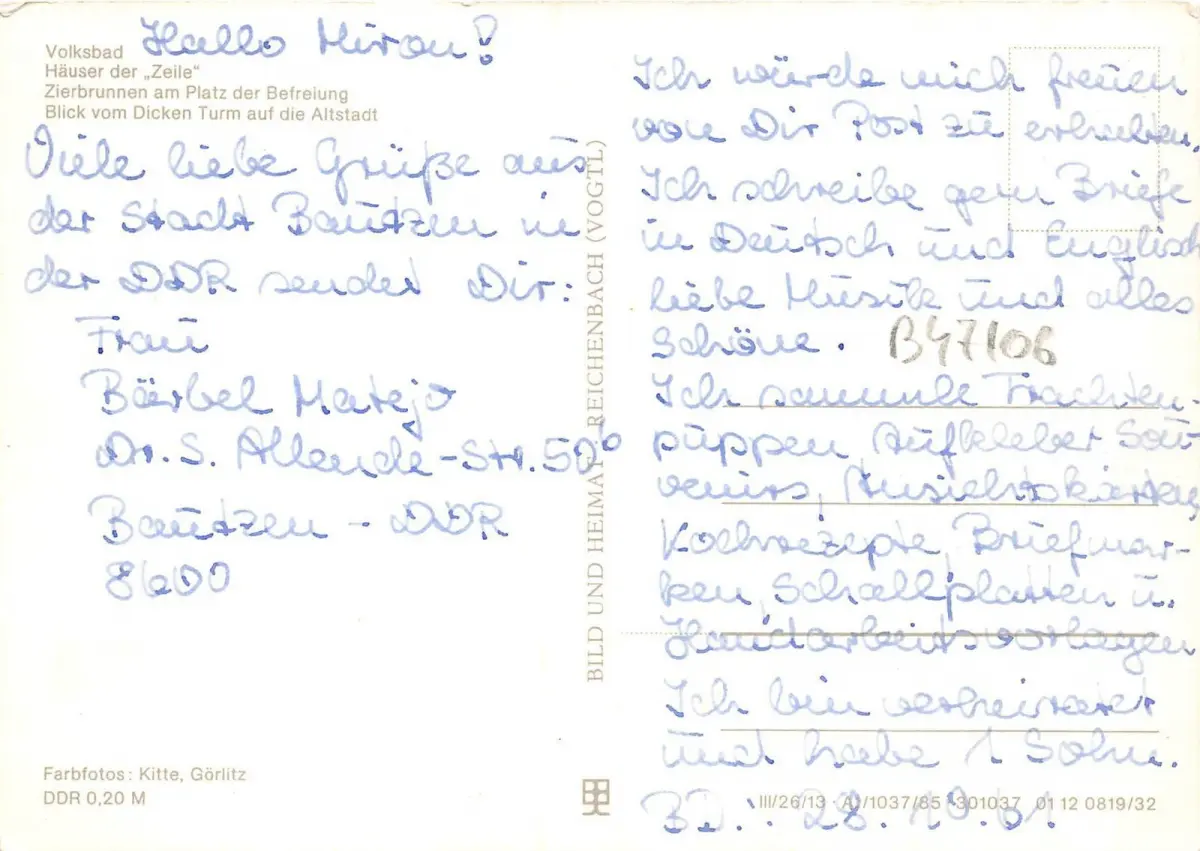 Volksbad
Häuser der „Zeile“
Zierbrunnen am Platz der Befreiung
Blick vom Dicken Turm auf die Altstadt
Hallo Miron!
Viele liebe Grüße aus
der Stadt Bautzen in
der DDR sendet Dir:
Frau
Bärbel
Dr. S. Allende-Str. 50
Bautzen - DDR
8600
Farbfotos: Kitte, Görlitz
DDR 0,20 M
BILD UND HEIMAT REICHENBACH (VOGTL)
Ich würde mich freuen
von Dir Post zu erhalten.
Ich schreibe gern Briefe
in Deutsch und Englisch
liebe Musik und alles
Schöne.
B47106
Ich sammle Trachten-
puppen, Aufkleber Sou-
venirs, Ansichtskarten,
Kochrezepte, Briefmar-
ken, Schallplatten u.
Handarbeitsvorlagen
Ich bin verheiratet
und habe 1 Sohn.
III/26/13 · A1/1037/85 · 301037 01 12 0819/32